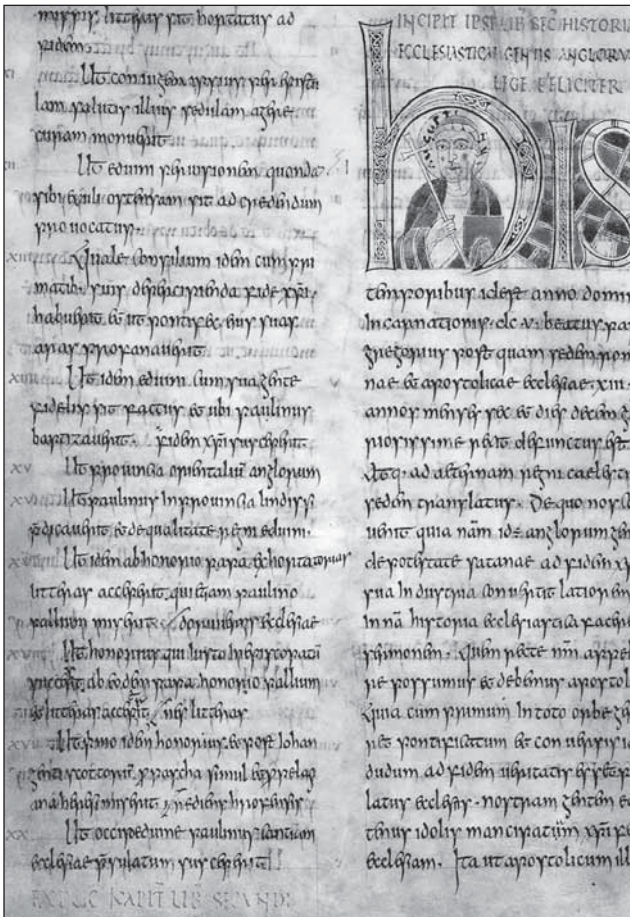 missis litteris sit hortatus ad
fidem
xi Ut coniugem ipsius per epistu
lam salutis illius sedulam agere
curam monuerit
xii Ut eduini per uisionem quonda
sibi exuli ostensam sit ad credendum
prouocatus.
xiii Quale consilium idem cum pri
matib; suis de percipienda fide xp̄i.
habuerit. et ut pontifex eius suas
aras profanauerit
xiiii Ut idem eduini. cum sua gente
fidelis sit factus et ubi paulinus
baptizauerit. fidem xp̄i susceperit
xv Ut prouincia orientaliū anglorum
xvi Ut paulinus in prouincia lindissi
p̄dicauerit et de qualitate regni eduini.
xvii Ut idem ab honorio papa exhortatorias
litteras acceperit. qui etiam paulino
pallium miserit doruuernis ecclesiae
Ut honorius qui iusto in episcopatū
ab eodem papa honorio pallium
et litteras litteras
Ut primo idem honorius et post iohan
genti scottorū pro pascha simul et pro pelag
ana heresi miserit
xx Ut occiso eduine paulinus cantiam
ecclesiae p̄sulatum susceperit
EXPLIC KAPIT LIB SECUNDI
INCIPIT IPSE LIB SEC HISTORI
ECCLESIASTICAE GENTIS ANGLORV
LEGE FELICITER
AUGUSTINUS
hIS
temporibus id est anno domini
incarnationis. dc v. beatus pa
gregorius post quam sedem rom
nae et apostolicae ecclesiae. xiii.
annos menses sex et dies decem g
riosissime rexit defunctus est.
Atq. ad aeternam regni caelesti
sedem translatus. De quo nos c
uenit quia nām id÷ anglorum gen
de potestate satanae ad fidem xp
sua industria conuertit latiorem
in nā historia ecclesiastica facere
sermonem. Quem recte nm̄ appel
re possumus et debemus apostol
Quia cum primum in toto orbe ge
ret pontificatum et conuersis i
dudum ad fidem ueritatis esset p
latus ecclesiis. nostram gentem e
tenus idolis mancipatam xp̄i fe
ecclesiam. Ita ut apostolicum ill